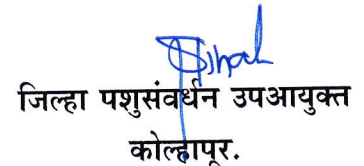 जिल्हा पशुसंवर्धन उपआयुक्त
कोल्हापूर.